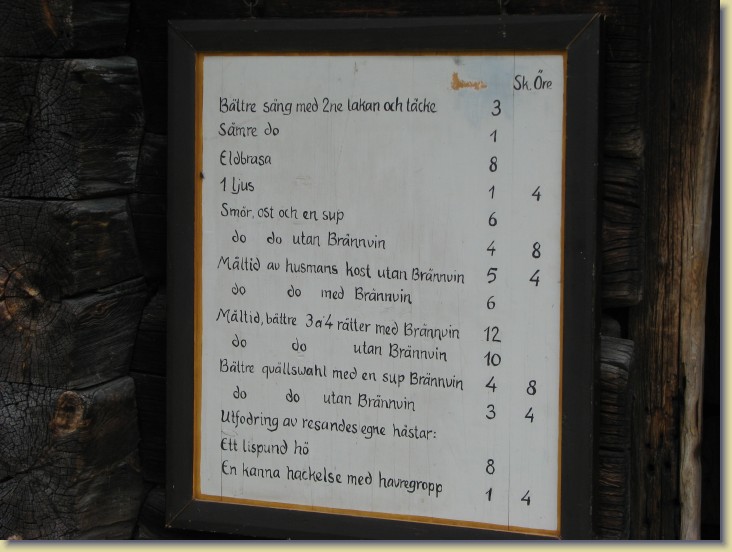 Sk. Öre
Bältre säng med 2ne lakan och täcke 3
Sämre do 1
Eldbrasa 8
1 ljus 1 4
Smör, ost och en sup 6
do do utan Brännvin 4 8
Måltid av husmans kost utan Brännvin 5 4
do do med Brännvin 6
Måltid, bältre 3 à 4 rätter med Brännvin 12
do do utan Brännvin 10
Bältre quällswahl med en sup Brännvin 4 8
do do utan Brännvin 3 4
Utfodring av resandes egne hästar:
Ett lispund hö 8
En kanna hackelse med havregropp 1 4